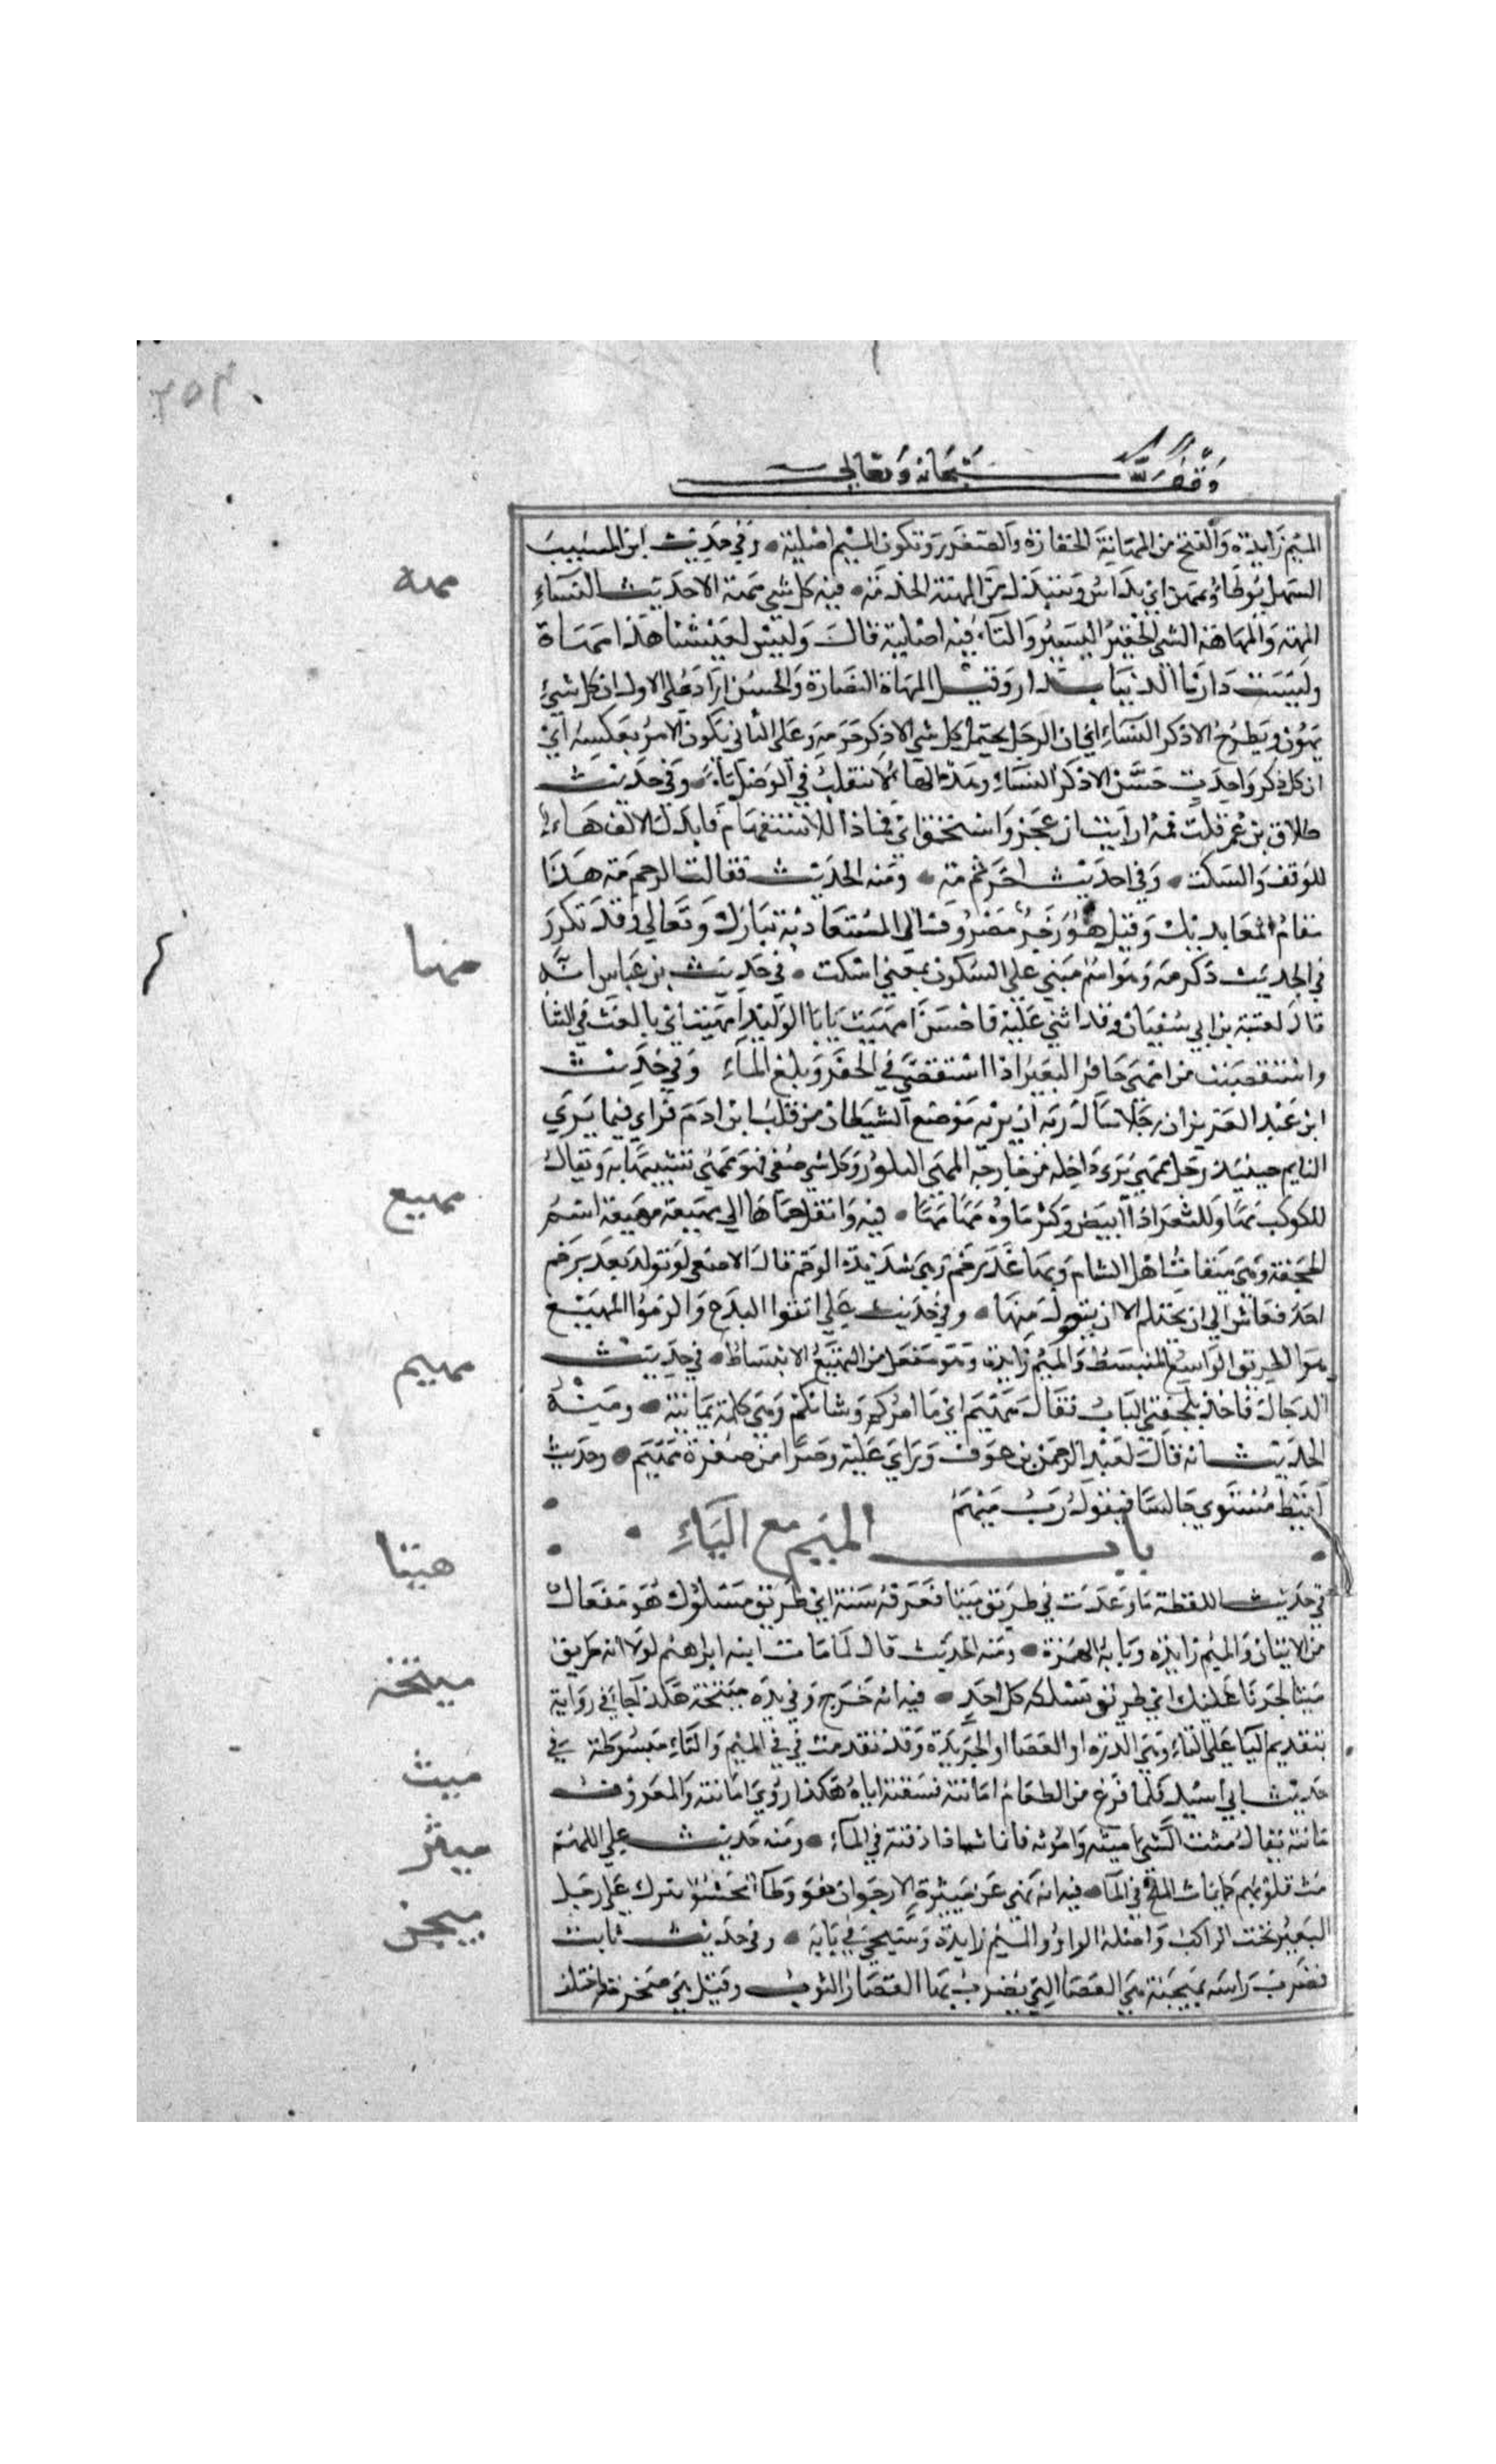 ٢٥٢
وقف لله سبحانه وتعالى
الميم زايدة والفتح من المهانة الحقارة والصغر وتكون الميم اصلية • وفي حديث ابن المسيب
السهل يوطا ويمتهن اي يداس ويبتذل من المهنة الخدمة • فيه كل شي مهة الا حديث النساء
المهه والمهاهة الشي الحقير اليسير والهاء فيه اصلية قال وليس لعيشنا هذا مهاة
وليست دارنا الدنيا بدار وقيل المهاة النضارة والحسن اراد على الاول ان كل شيء
يهون ويطرح الا ذكر النساء اي ان الرجل يحتمل كل شي الا ذكر حرمه وعلى الثاني يكون الامر بعكسه اي
ان كل ذكر وحديث حسن الا ذكر النساء وهذه الهاء لا تنقلب في الوصل تاء • وفي حديث
طلاق بن عمر قلت فمه ارايت ان عجز واستحمق اي فماذا للاستفهام فابدل الالف هاء
للوقف والسكت • وفي احديث اخر ثم مه • ومنه الحديث فقالت الرحم مه هذا
مقام العايذ بك وقيل هو زجر مصروف الى المستعاذ به تبارك وتعالى وقد تكرر
في الحديث ذكر مه وهو اسم مبني على السكون بمعني اسكت • في حديث بن عباس انه
قال لعتبة بن ابي سفيان وقد اثني عليه فاحسن امهيت يابا الوليد امهيت اي بالغت في الثنا
واستقصيت من امهى حافر البير اذا استقصي في الحفر وبلغ الماء وفي حديث
ابن عبد العزيز ان رجلا سال ربه ان يريه موضع الشيطان من قلب ابن ادم فراي فيما يري
النايم جسد رجل ممهي يري داخله من خارجه المهى البلور وكل شي صفي فهو ممهي تشبيها به ويقال
للكوكب مها وللثغر اذا ابيض وكثر ماوه مها • فيه وانقل حماها الي مهيعة مهيعة اسم
الجحفة وهي ميقات اهل الشام وبها غدير خم وهي شديدة الوخم قال الاصمعي لم يولد بغدير خم
احد فعاش الي ان يحتلم الا ان يتحول منها • وفي حديث علي اتقوا البدع والزموا المهيع
هو الطريق الواسع المنبسط والميم زايدة وهو مفعل من التهيع الانبساط • في حديث
الدجال فاخذ بلجفتي الباب فقال مهيم اي ما امركم وشانكم وهي كلمة يمانية • ومنه
الحديث انه قال لعبد الرحمن بن عوف وراي عليه وضرا من صفرة مهيم • وحديث
لقيط فيستوي جالسا فيقول رب مهيم
باب الميم مع الياء
في حديث اللقطة ما وجدت في طريق ميتا فعرفه سنة اي طريق مسلوك هو مفعال
من الاتيان والميم زايدة وبابه الهمزة • ومنه الحديث قال لما مات ابنه ابراهيم لولا انه طريق
ميتا لحزنا عليك اي طريق يسلكه كل احد • فيه انه خرج وفي يده ميتخة هكذا جا في رواية
بتقديم اليا على التاء وهي الدرة او العصا او الجريدة وقد تقدمت في في الميم والتاء مبسوطة في
حديث ابي اسيد فلما فرغ من الطعام اماثته فسقته اياه هكذا روي اماثته والمعروف
ماثته يقال مثت الشي اميثه واموثه فانماث اذا دفته في الماء • ومنه حديث علي اللهم
مث قلوبهم كما يماث الملح في الماء • فيه انه نهي عن ميثرة الارجوان هو وطا محشو يترك على رحل
البعير تحت الراكب واصله الواو والميم زايدة وسيجي في بابه • وفي حديث ثابت
فضرب راسه بميجنة هي العصا التي يضرب بها القصار الثوب وقيل هي صخرة واختلف
مهه
مها
مهيع
مهيم
ميتا
ميتخة
ميث
ميثر
ميجن